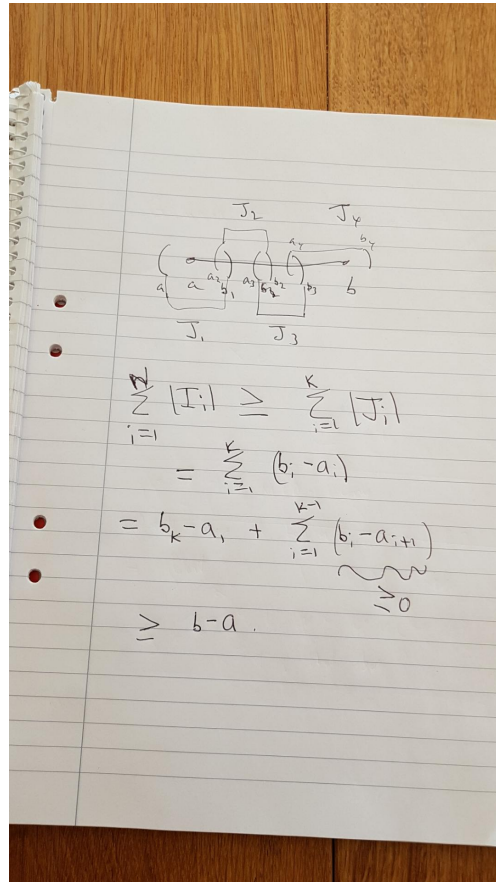 J₂ J₄
a₄ b₄
a₁ a a₂ b₁ a₃ b₂ b₃ b
J₁ J₃
N∑i=1 |Iᵢ| ≥ K∑i=1 |Jᵢ|
= K∑i=1 (bᵢ - aᵢ)
= bK - a₁ + K-1∑i=1 (bᵢ - aᵢ₊₁)
≥ 0
≥ b - a .